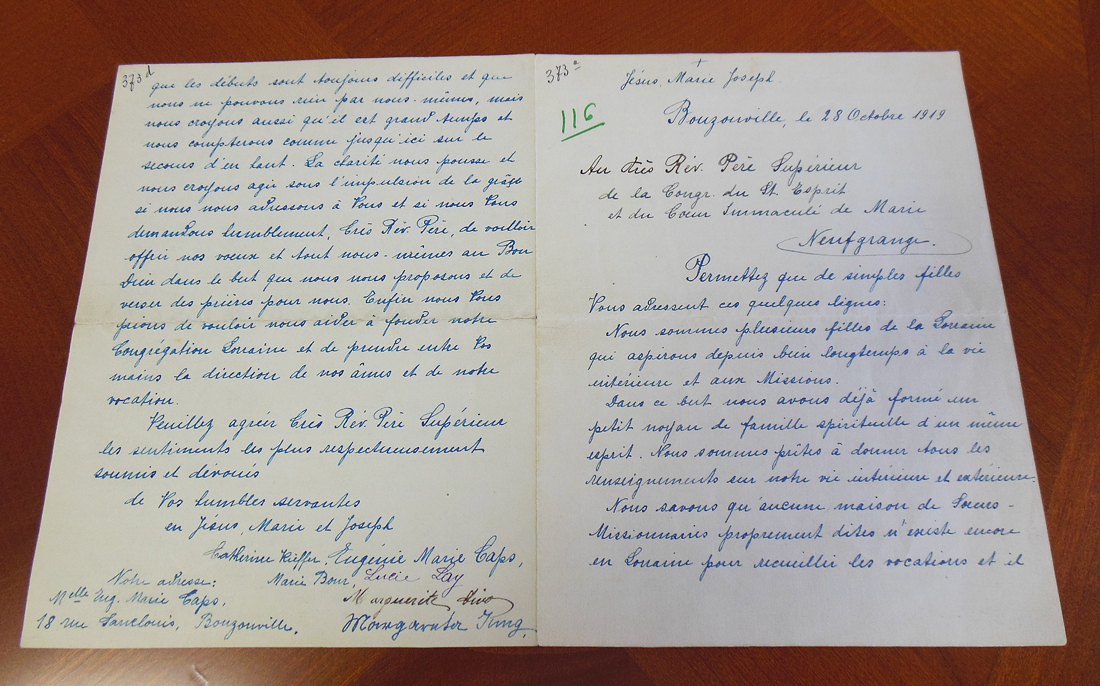 373 d
que les débuts sont toujours difficiles et que
nous ne pouvons rien par nous-mêmes, mais
nous croyons aussi qu'il est grand temps et
nous compterons comme jusqu'ici sur le
secours d'en haut. La clarité nous pousse et
nous croyons agir sous l'impulsion de la grâce
si nous nous adressons à Vous et si nous Vous
demandons humblement, Très Rév. Père, de vouloir
offrir nos vœux et tout nous-mêmes au Bon
Dieu dans le but que nous nous proposons et de
verser des prières pour nous. Enfin nous Vous
prions de vouloir nous aider à fonder notre
Congrégation Lorraine et de prendre entre Vos
mains la direction de nos âmes et de notre
vocation.
Veuillez agréer Très Rév. Père Supérieur
les sentiments les plus respectueusement
soumis et dévoués
de Vos humbles servantes
en Jésus, Marie et Joseph
Catherine Kieffer, Eugénie Marie Caps,
Notre adresse: Marie Bour, Lucie Lay
Melle Eug. Marie Caps, Marguerite
18 rue, Bouzonville.
373 a
Jésus, Marie Joseph
116
Bouzonville, le 28 Octobre 1919
Au très Rév. Père Supérieur
de la Congr. du St. Esprit
et du Cœur Immaculé de Marie
Neufgrange.
Permettez que de simples filles
Vous adressent ces quelques lignes:
Nous sommes plusieurs filles de la Lorraine
qui aspirons depuis bien longtemps à la vie
intérieure et aux Missions.
Dans ce but nous avons déjà formé un
petit noyau de famille spirituelle d'un même
esprit. Nous sommes prêtes à donner tous les
renseignements sur notre vie intérieure et extérieure.
Nous savons qu'aucune maison de Sœurs-
Missionnaires proprement dites n'existe encore
en Lorraine pour recueillir les vocations et il